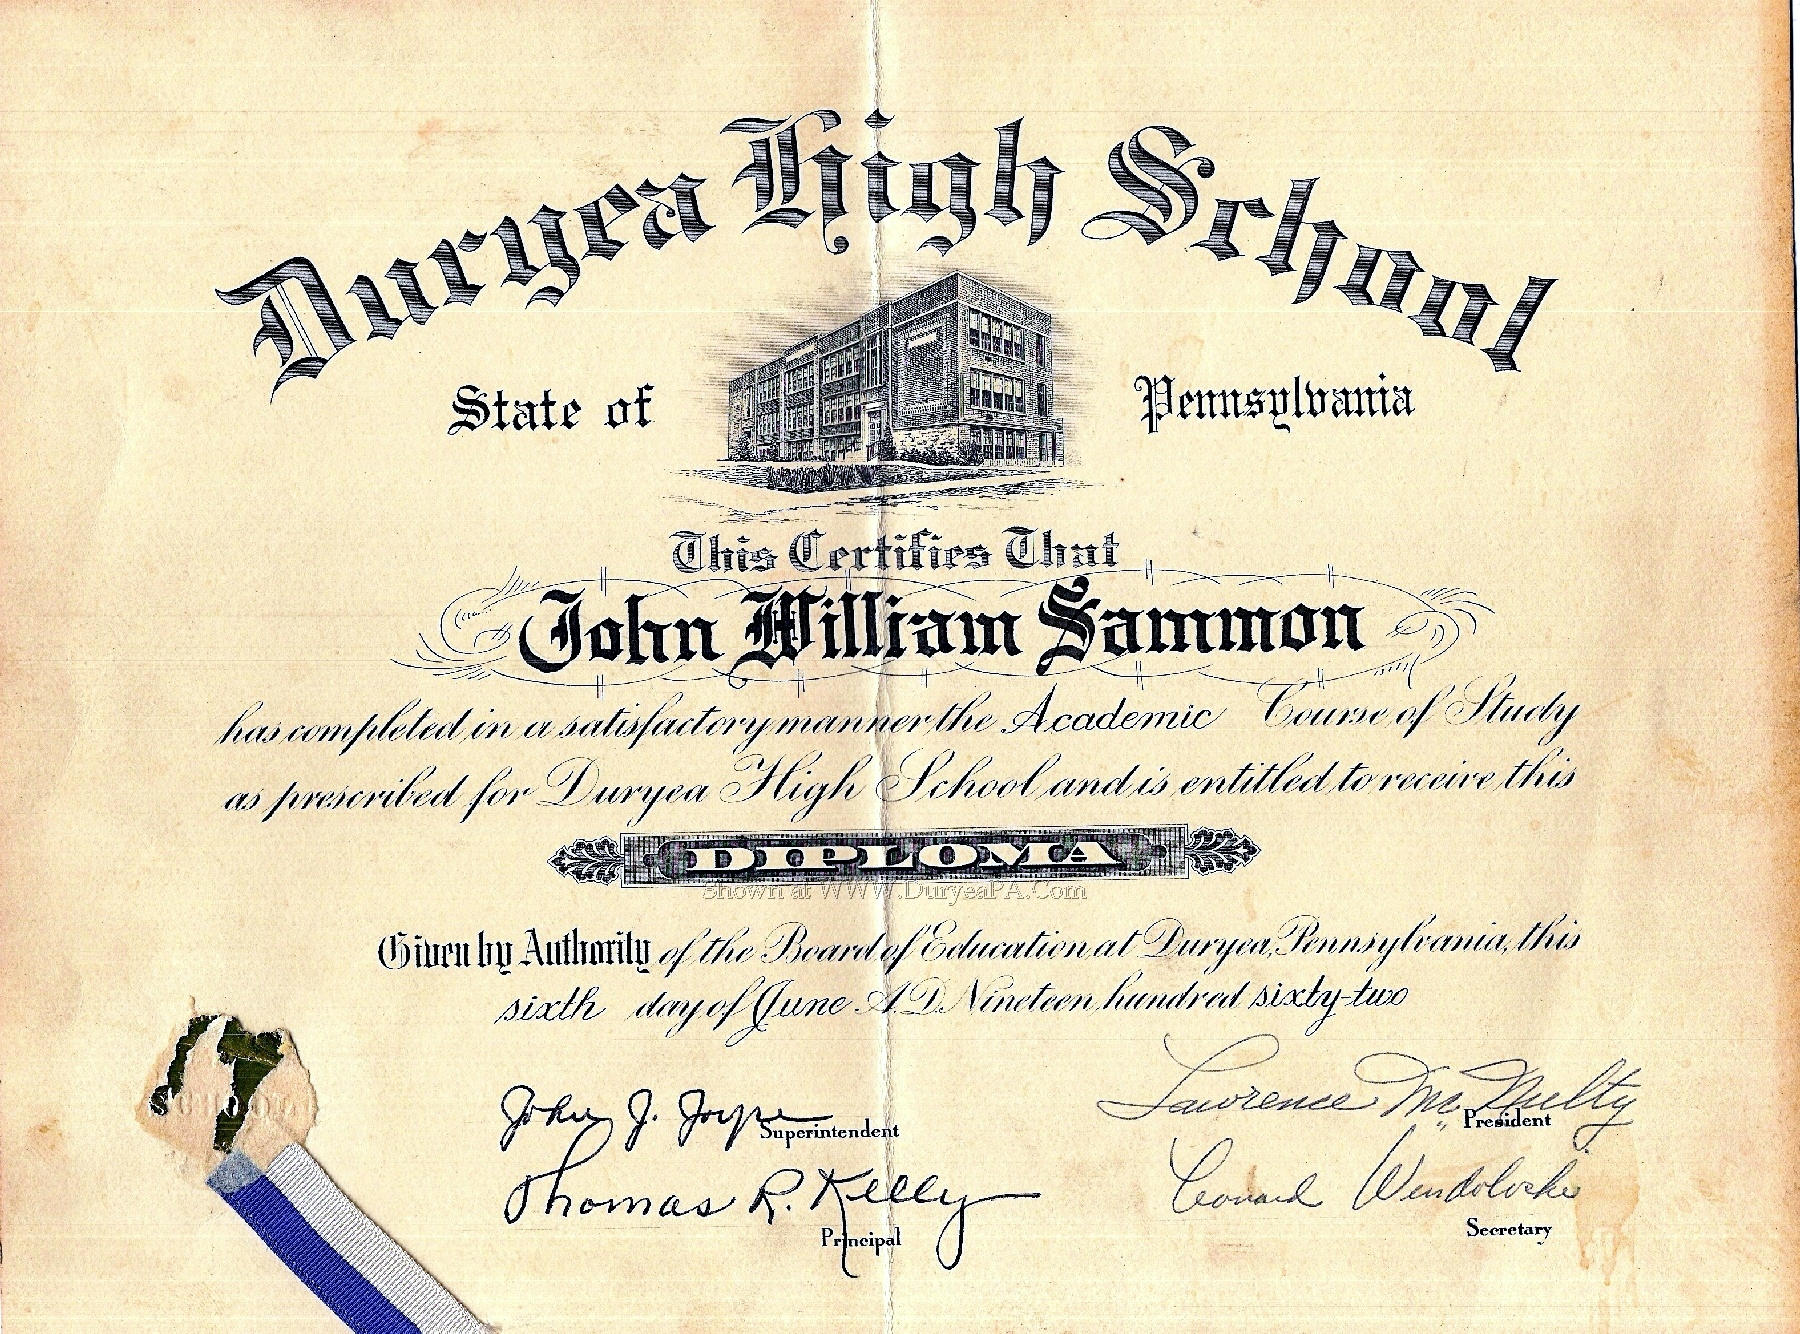 Duryea High School
State of Pennsylvania
This Certifies That
John William Sammon
has completed in a satisfactory manner the Academic Course of Study
as prescribed for Duryea High School and is entitled to receive this
DIPLOMA
Shown at WWW.DuryeaPA.Com
Given by Authority of the Board of Education at Duryea, Pennsylvania, this
sixth day of June A.D. Nineteen hundred sixty-two
John J. Joyce
Superintendent
Lawrence McNulty
President
Thomas R. Kelly
Principal
Leonard Wendoloski
Secretary